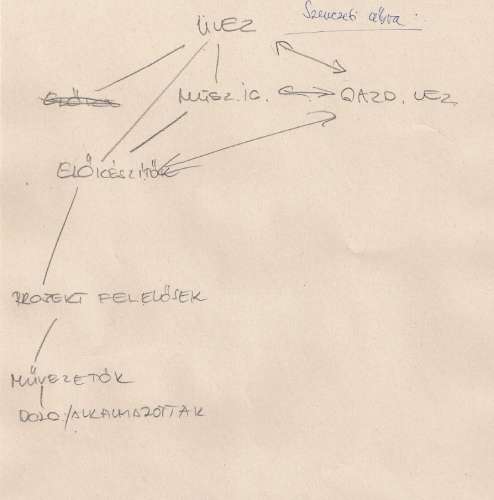 ÜVEZ
Szervezeti ábra:
MŰSZ. IG.
GAZD. VEZ
ELŐKÉSZÍTŐK
PROJEKT FELELŐSEK
MŰVEZETŐK
DOLG/ALKALMAZOTTAK